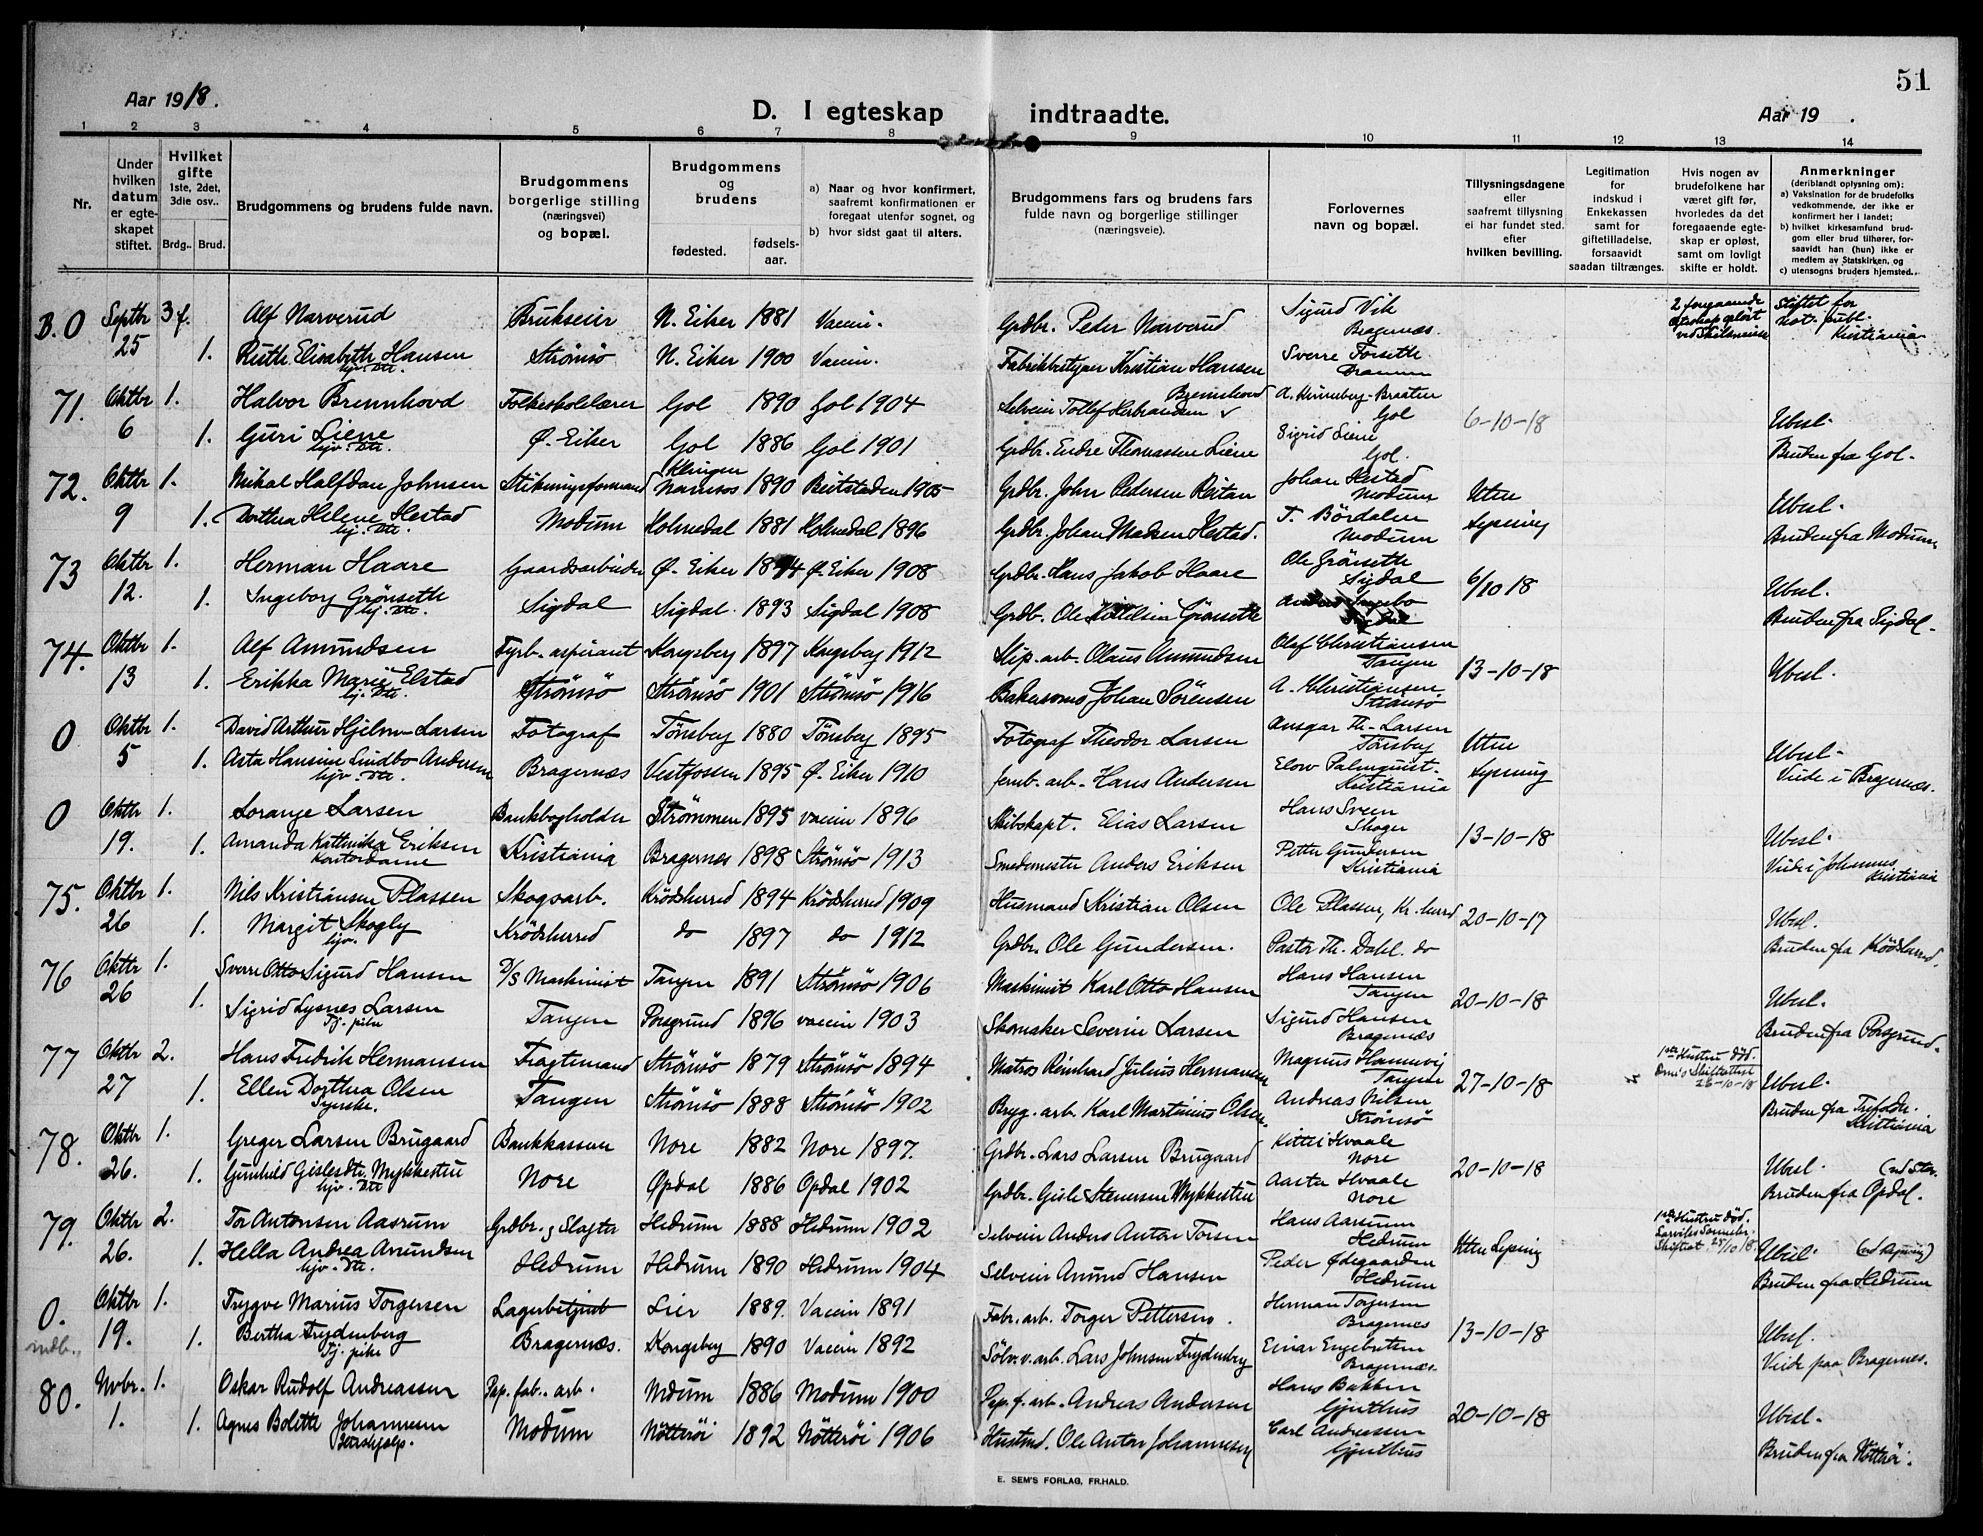 51
Aar 1918.
D. I egteskap indtraadte.
Aar 19 .
1 2 3 4 5 6 7 8 9 10 11 12 13 14
Nr.
Under hvilken datum er egteskapet stiftet.
Hvilket gifte 1ste, 2det, 3die osv..
Brdg.. Brud.
Brudgommens og brudens fulde navn.
Brudgommens borgerlige stilling (næringsvei) og bopæl.
Brudgommens og brudens
fødested. fødsels-aar.
a) Naar og hvor konfirmert, saafremt konfirmationen er foregaat utenfor sognet, og
b) hvor sidst gaat til alters.
Brudgommens fars og brudens fars fulde navn og borgerlige stillinger (næringsveie).
Forlovernes navn og bopæl.
Tillysningsdagene eller saafremt tillysning ei har fundet sted. efter hvilken bevilling.
Legitimation for indskud i Enkekassen samt for giftetilladelse, forsaavidt saadan tiltrænges.
Hvis nogen av brudefolkene har været gift før, hvorledes da det foregaaende egteskap er opløst, samt om lovligt skifte er holdt.
Anmerkninger (deriblandt oplysning om):
a) Vaksination for de brudefolks vedkommende, der ikke er konfirmert her i landet;
b) hvilket kirkesamfund brudgom eller brud tilhører, forsaavidt han (hun) ikke er medlem av Statskirken, og
c) utensogns bruders hjemsted..
B. 0 Septbr 3 f. Alf Narverud Brukseier N. Eiker 1881 Vaccin. Grdbr. Peder Narverud Sigurd Vik Bragernæs. 2 foregaaende egteskap opløst ved Skilsmisse Stiftet for not. publ. Kristiania
25 1. Ruth Elisabeth Hansen hjv. Dtr. Strømsø N. Eiker 1900 Vaccin. Fabrikbestyrer Kristian Hansen Sverre Forseth Drammen
71. Oktbr 1. Halvor Brennhovd Folkeskolelærer Gol 1890 Gol 1904 Selveier Tollef Herbrandsen Brennhovd A. Kinneberg-Braaten Gol 6-10-18 Ubesl.
6 1. Guri Liene hjv. Dtr. Ø. Eiker Gol 1886 Gol 1901 Grdbr. Endre Thomassen Liene Sigrid Liene Gol. Bruden fra Gol.
72. Oktbr 1. Mikal Halfdan Johnsen Stikningsformand Klingen Namsos 1890 Beitstaden 1905 Grdbr. John Pedersen Reitan Johan Hestad Modum Uten Ubesl.
9 1. Dorthea Helene Hestad hj. Dtr. Modum Holmedal 1881 Holmedal 1896 Grdbr. Johan Madsen Hestad. T. Bördalen Modum Lysning Bruden fra Modum
73 Oktbr 1. Herman Haare Gaardsarbeider Ø. Eiker 1894 Ø. Eiker 1908 Grdbr. Hans Jakob Haare Ole Grönseth Sigdal 6/10 18 Ubesl.
12. 1. Ingeborg Grønseth hj. Dtr. Sigdal Sigdal. 1893 Sigdal 1908 Grdb. Ole Grønseth Bruden fra Sigdal.
74. Oktbr 1. Alf Amundsen Fyrb. aspirant Kongsberg 1897 Kongsberg 1912 Slip. arb. Olaus Amundsen Olaf Christiansen Tangen 13-10-18 Ubesl.
13 1. Erikka Marie Elstad hj. Dtr. Strømsø Strømsø 1901 Strømsø 1916 Johan Sörensen A. Christiansen Strømsø
0 Oktbr 1. David Arthur Hjelm Larsen Fotograf Tönsberg 1880 Tönsberg 1895 Fotograf Theodor Larsen Ansgar Th. Larsen Tönsberg Uten Ubesl.
5 1. Asta Hansine Lindbo Andersen hjv. Dtr. Bragernæs Vestfossen 1895 Ø. Eiker 1910 Jernb. arb. Hans Andersen Elow Palmquist Kristiania Lysning Viede i Bragernæs.
0 Oktbr 1. Lorange Larsen Bankbogholder Strömmen 1895 vaccin 1896 Skibskapt. Elias Larsen Hans Sveen Skoger 13-10-18 Ubesl.
19. 1. Amanda Kathinka Eriksen Kontordame Kristiania Bragernæs 1898 Strömsö 1913 Smedemester Anders Eriksen Petter Gundersen Kristiania Viede i Johannes Kristiania
75. Oktbr 1. Nils Kristiansen Plassen Skogsarb. Krödsherred 1894 Krödsherred 1909 Husmand Kristian Olsen Ole Plassen, Kr. herred 20-10-17 Ubesl.
26 1. Margit Skogly hjv. Krödsherred do 1897 do 1912 Grdbr. Ole Gundersen. Pastor Th. Dahl. do Bruden fra Krödsherred.
76 Oktbr 1. Sverre Otto Sigurd Hansen D/S Maskinist Tangen 1891 Strömsö 1906 Maskinist Karl Otto Hansen Hans Hansen Tangen 20-10-18 Ubesl.
26 1. Sigrid Lysnes Larsen Tj. pike Tangen Porsgrund 1896 vaccin 1903 Skomaker Severin Larsen Sigurd Hansen Bragernæs Bruden fra Porsgrund.
77 Oktbr 2. Hans Fredrik Hermansen Fragtemand Strömsö 1879 Strömsö 1894 Matros Reinhard Julius Hermansen Magnus Hannevig Tangen 27-10-18 1ste Hustru död. Skifteattest 23-10-18 Ubesl.
27 1. Ellen Dorthea Olsen Syerske. Tangen Strömsö 1888 Strömsö 1902 Bryg. arb. Karl Martinius Olsen. Andreas Nilsen Strömsö Bruden fra Kristiania
78. Oktbr 1. Greger Larsen Brugaard Bankkasserer Nore 1882 Nore 1897. Grdbr. Lars Larsen Brugaard Kittel Hvaale Nore 20-10-18 Ubesl.
26. 1. Gunhild Gislesdtr. Mykkestu hjv. Dtr. Nore Opdal 1886 Opdal 1902 Grdbr. Gisle Stenersen Mykkestu Aasta Hvaale Nore Bruden fra Opdal.
79. Oktbr 2. Tor Antonsen Aasrum Grdbr. & Slagter Hedrum 1888 Hedrum 1902 Selveier Anders Anton Torsen Hans Aasrum Hedrum Uten Lysning 1ste Hustru död. 25/10 18. Ubesl.
26. 1. Hella Andrea Anundsen hjv. Dtr. Hedrum Hedrum 1890 Hedrum 1904 Selveier Anund Hansen Peder Ødegaarden Hedrum Bruden fra Hedrum
0. Oktbr 1. Trygve Marius Torgersen Lagerbetjent Lier 1889. Vaccin 1891 Fabr. arb. Torger Pettersen. Herman Torgersen Bragernes 13-10-18 Ubesl.
19. 1. Bertha Frydenberg Tj. pike Bragernæs. Kongsberg 1890 Vaccin 1892 Sölvv. arb. Lars Johnsen Frydenberg Einar Engebretsen Bragernæs. Viede paa Bragernes.
80. Nvbr. 1. Oskar Rudolf Andreassen Pap. fab. arb. Modum 1886 Modum 1900 Pap. f. arb. Andreas Andersen Hans Bakken Gjeithus 20-10-18 Ubesl.
1. 1. Agnes Bolette Johannesen Modum Nötterøi 1892 Nötterøi 1906 Ole Anton Johannesen Carl Andreassen Gjeithus Bruden fra Nötterøi.
E. SEM'S FORLAG, FR.HALD.